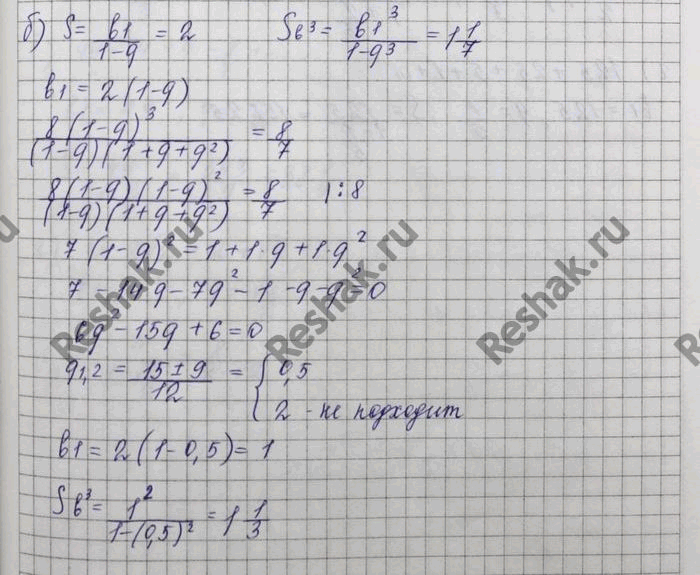 б) S = b1/(1-q) = 2    Sb³ = b1³/(1-q³) = 1 1/7
b1 = 2(1-q)
8(1-q)³/((1-q)(1+q+q²)) = 8/7
8(1-q)(1-q)²/((1-q)(1+q+q²)) = 8/7    |:8
7(1-q)² = 1+1·q+1·q²
7 - 14q - 7q² - 1 - q - q² = 0
6q² - 15q + 6 = 0
q1,2 = (15±9)/12 = { 0,5
2 - не подходит
b1 = 2(1-0,5) = 1
Sb³ = 1²/(1-(0,5)²) = 1 1/3
Reshak.ru
Reshak.ru
Reshak.ru